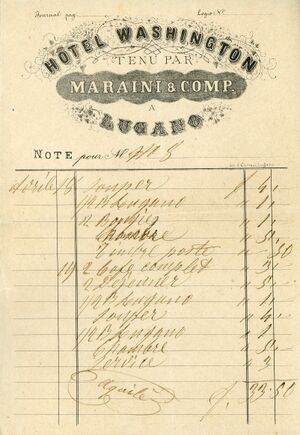 Journal pag. Logis N.
HÔTEL WASHINGTON
TENU PAR
MARAINI & COMP.
A
LUGANO
NOTE pour N. 8
18 Souper " 4,-
1/2 B. Lugano " 1,-
2 Bougies " 1,-
Chambre " 5,-
Timbre poste " -,50
19 2 Café complet " 3,-
2 Déjeuner " 5,-
1/2 B. Lugano " 1,-
Souper " 4,-
1/2 B. Lugano " 1,-
Chambre " 5,-
Service " 3,-
f. 33.50